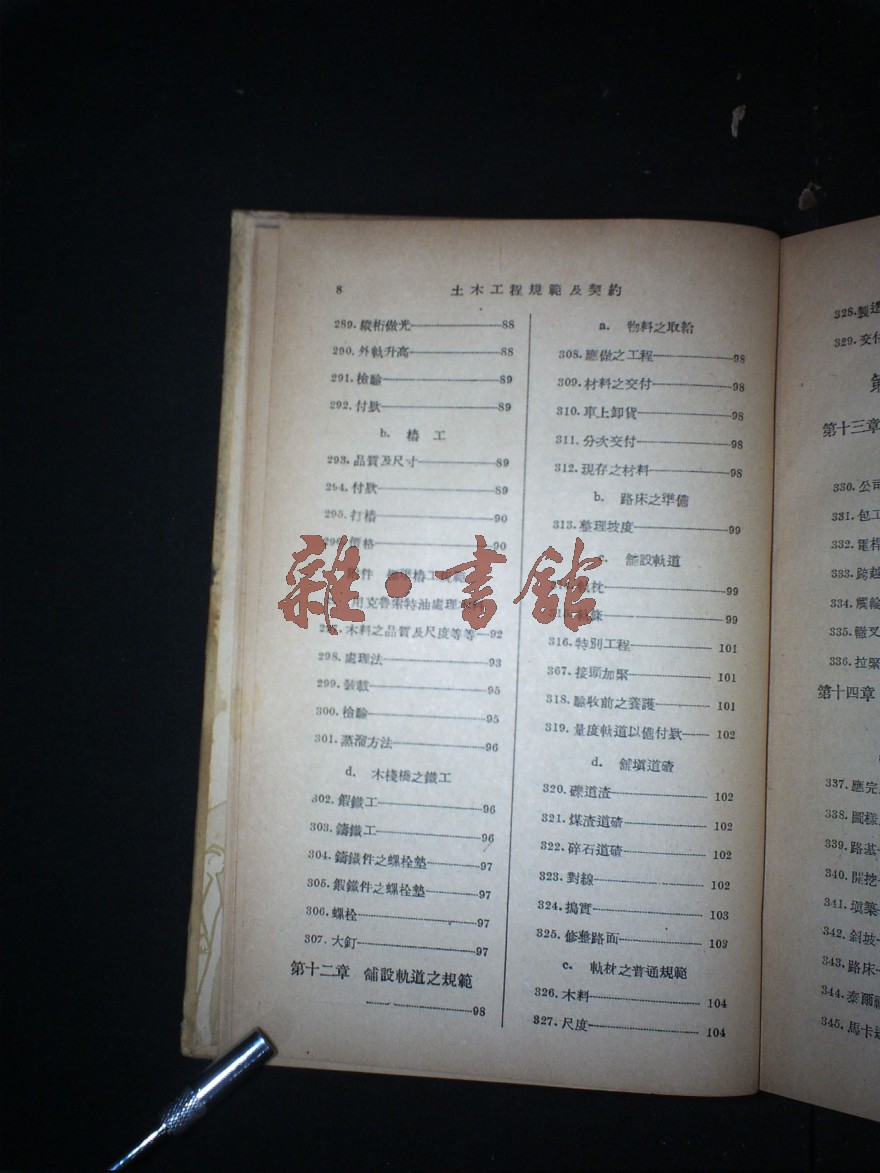 8
土木工程規範及契約
289. 縱桁做光 88
290. 外軌升高 88
291. 檢驗 89
292. 付款 89
b. 樁 工
293. 品質及尺寸 89
294. 付款 89
295. 打樁 90
價格 90
用克魯索特油處理
木料之品質及尺度等等 92
298. 處理法 93
299. 裝載 95
300. 檢驗 95
301. 蒸溜方法 96
d. 木棧橋之鐵工
302. 鍜鐵工 96
303. 鑄鐵工 96
304. 鑄鐵件之螺栓墊 97
305. 鍜鐵件之螺栓墊 97
306. 螺栓 97
307. 大釘 97
第十二章 舖設軌道之規範
98
a. 物料之取給
308. 應做之工程 98
309. 材料之交付 98
310. 車上卸貨 98
311. 分次交付 98
312. 現存之材料 98
b. 路床之準備
313. 整理坡度 99
c. 舖設軌道
軌枕 99
99
316. 特別工程 101
367. 接頭加緊 101
318. 驗收前之養護 101
319. 量度軌道以備付款 102
d. 舖塡道碴
320. 礫道渣 102
321. 煤渣道碴 102
322. 碎石道碴 102
323. 對線 102
324. 搗實 103
325. 修整路面 103
軌枕之普通規範
326. 木料 104
327. 尺度 104
328. 製造
329. 交付
第
第十三章
330. 公司
331. 包工
332. 電桿
333. 跨越
334. 觸輪
335. 轍叉
336. 拉緊
第十四章
337. 應完
338. 圖樣
339. 路基
340. 開挖
341. 塡築
342. 斜坡
343. 路床
344. 泰爾
345. 馬卡
雜·書館